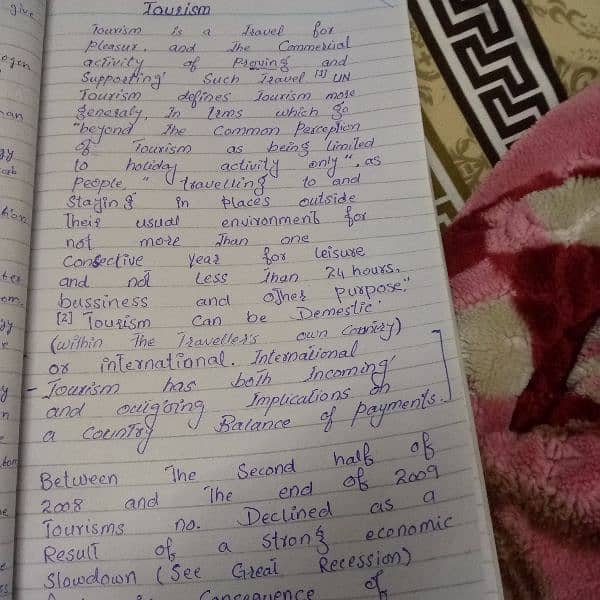 Tourism
Tourism is a Travel for
pleasur, and The Commercial
activity of Proving and
Supporting Such Travel [1] UN
Tourism defines Tourism more
generaly, In Terms which go
"beyond The Common Perception
of Tourism as being limited
to holiday activity only", as
People, "Travelling to and
Staying in places outside
Their usual environment for
not more Than one
Consective year for leisure
and not Less Than 24 hours,
bussiness and other purpose."
[2] Tourism Can be Demestic
(within The Traveller's own Country)
or international. International
- Tourism has both Incoming
and outgoing Implications on
a Country Balance of payments.
Between The Second half of
2008 and The end of 2009
Tourisms no. Declined as a
Result of a strong economic
Slowdown (See Great Recession)
Consequence of
give